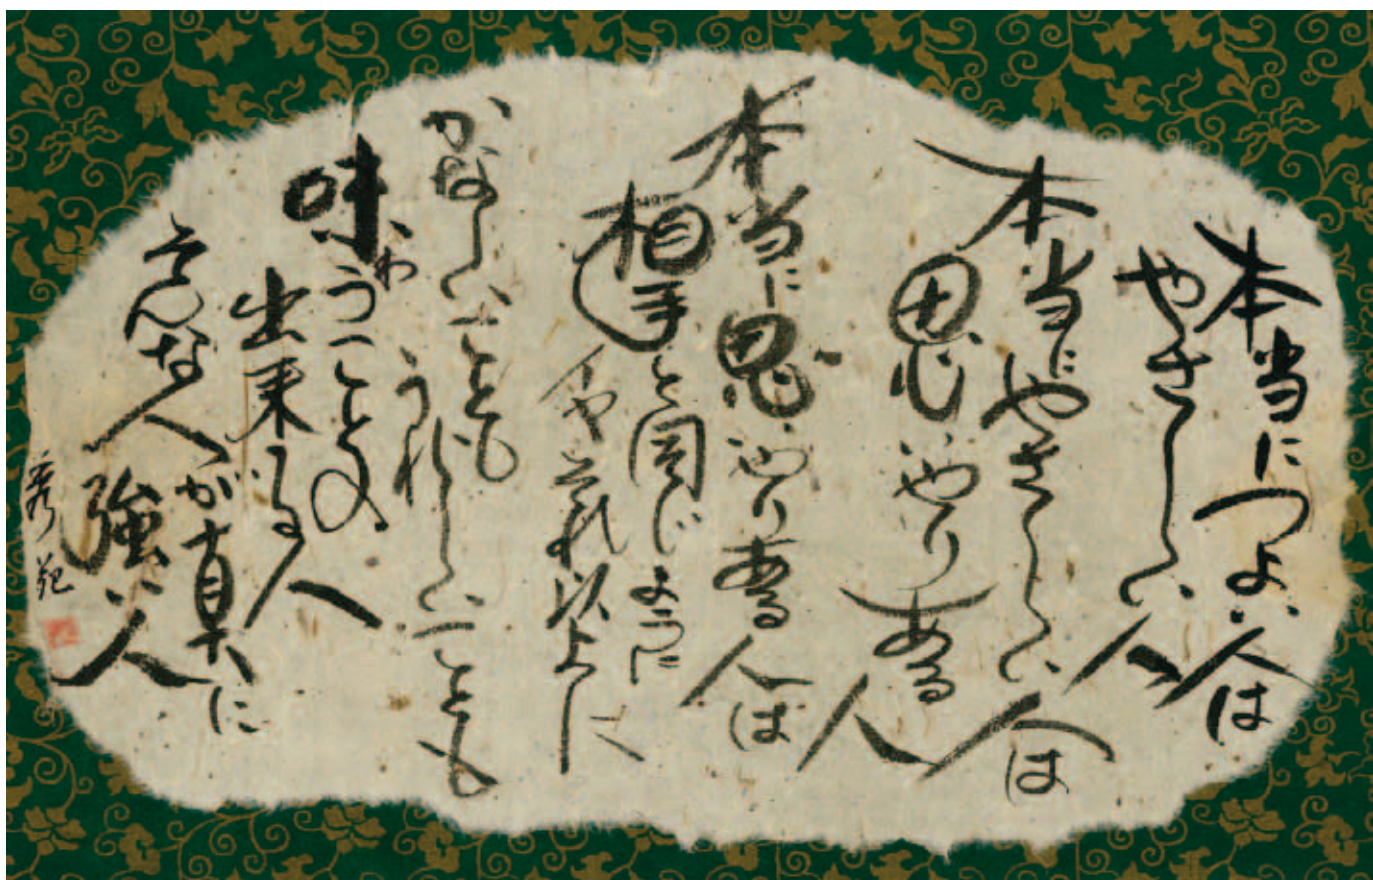 本当につよい人は
やさしい人
本当にやさしい人は
思いやりある人
本当に思いやり有る人は
相手と同じように
いやそれ以上に
かなしいことも
うれしいことも
味わうことの
出来る人
そんな人が真に
強い人